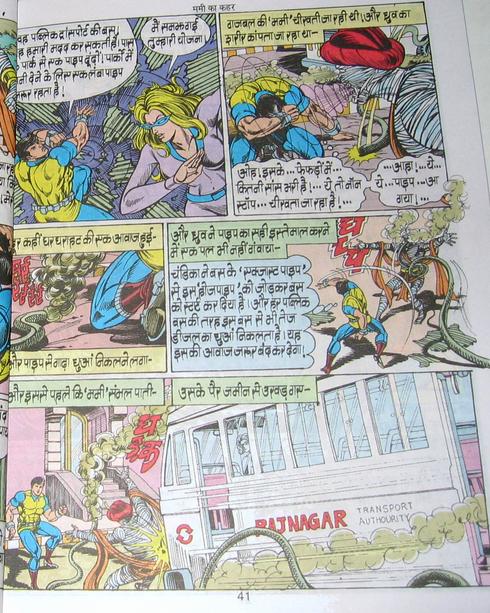 ममी का कहर
यह पब्लिक ट्रांसपोर्ट की बस,
हमारी मदद कर सकती है। पास
पार्क में एक पाइप ढूंढो। पार्कों में
नी देने के लिए एक लंबा पाइप
जरूर रहता है!
मैं समझ गई
तुम्हारी योजना!
गजब ल की 'ममी' चीखती जा रही थी। और ध्रुव का
शरीर कांपता जा रहा था-
ओह! इसके... फेफड़ों में...
कितनी सांस भरी है!... ये तो नॉन
स्टॉप... चीखता जा रहा है!...
...आहा!... ये...
ये... पाइप... आ
गया!...
कहीं घरघराहट की एक आवाज हुई-
र्र र्र र्र
और पाइप से गाढ़ा धुआं निकलने लगा-
और ध्रुव ने पाइप का सही इस्तेमाल करने
में एक पल भी नहीं गंवाया-
चंडिका ने बस के 'एक्जास्ट पाइप'
से इस 'होज पाइप' को जोड़कर बस
को स्टार्ट कर दिया है। और हर पब्लिक
बस की तरह इस बस से भी तेज
डीजल का धुआं निकलता है। यह
इसकी आवाज जरूर बंद कर देगा!
और इससे पहले कि 'ममी' संभल पाती-
उसके पैर जमीन से उखड़ गए-
RAJNAGAR
TRANSPORT
AUTHOURITY
41